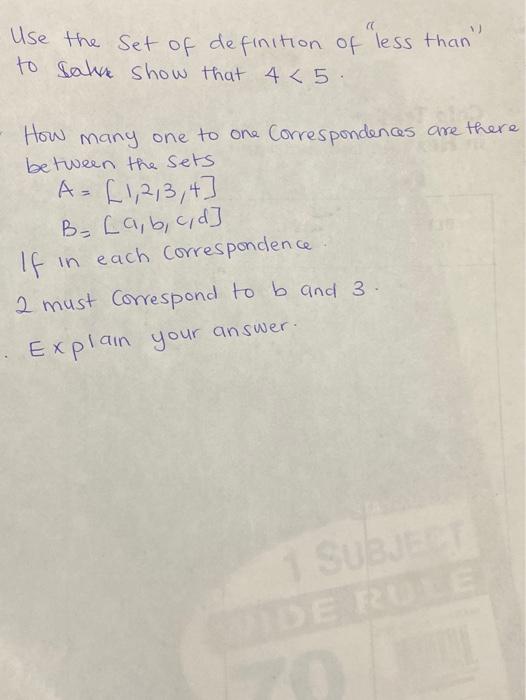 Use the Set of definition of "less than"
to show that 4 < 5.
How many one to one Correspondences are there
between the sets
A = [1,2,3,4]
B = [a,b,c,d]
If in each Correspondence.
2 must Correspond to b and 3.
Explain your answer.
1 SUBJECT
WIDE RULE
70